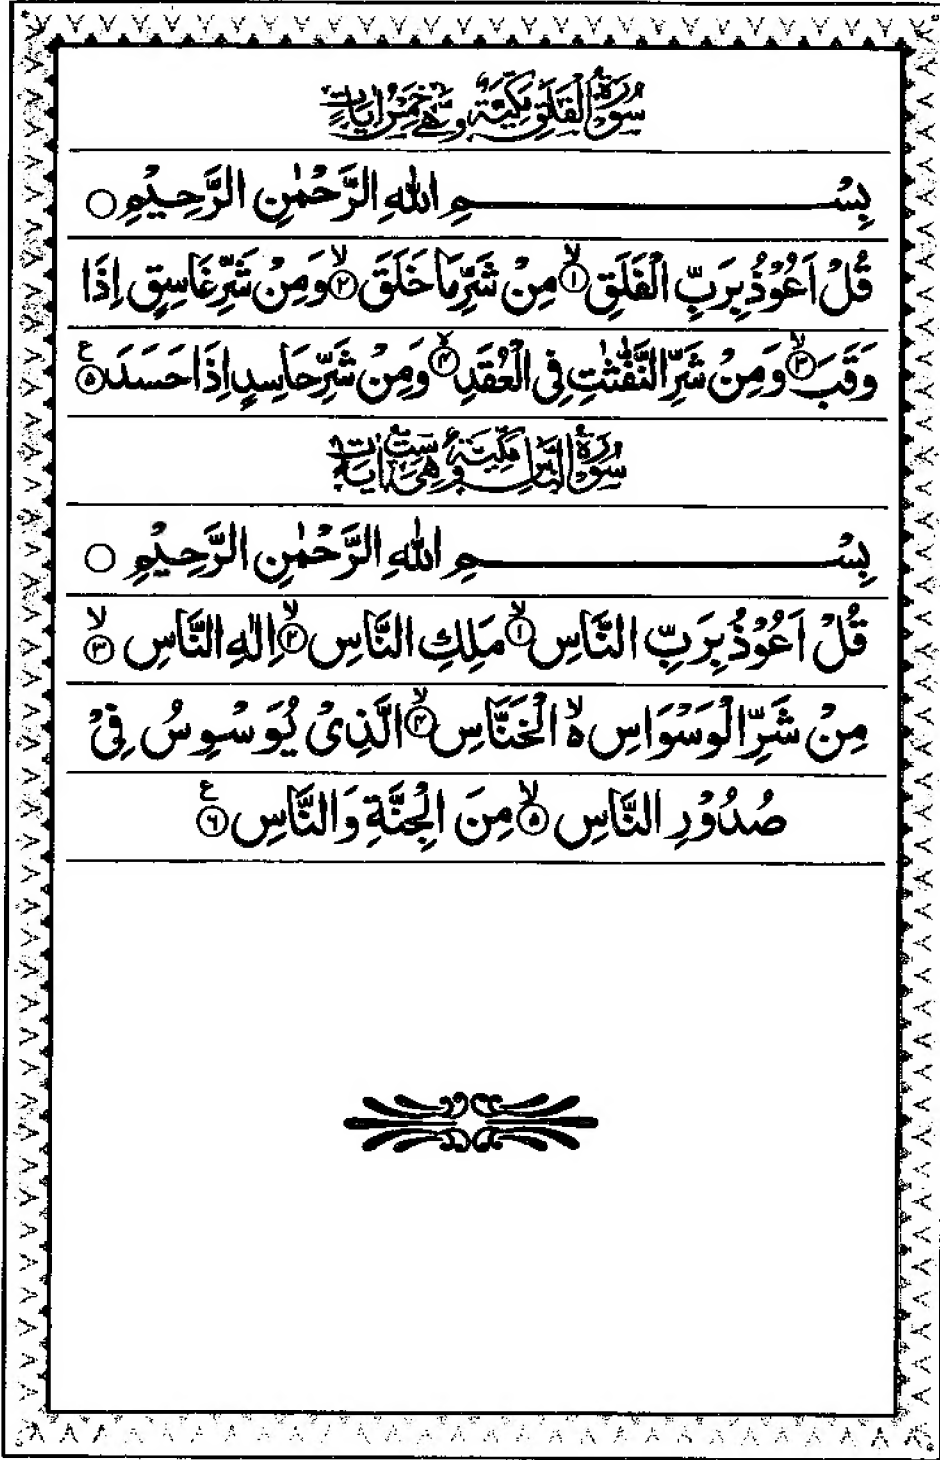 سُوْرَةُ الْفَلَقِ مَكِّيَّةٌ وَّهِيَ خَمْسُ اٰيَاتٍ
بِسْمِ اللّٰهِ الرَّحْمٰنِ الرَّحِيْمِ ○
قُلْ اَعُوْذُ بِرَبِّ الْفَلَقِ ۙ﴿۱﴾ مِنْ شَرِّ مَا خَلَقَ ۙ﴿۲﴾ وَمِنْ شَرِّ غَاسِقٍ اِذَا
وَقَبَ ۙ﴿۳﴾ وَمِنْ شَرِّ النَّفّٰثٰتِ فِی الْعُقَدِ ۙ﴿۴﴾ وَمِنْ شَرِّ حَاسِدٍ اِذَا حَسَدَ ﴿۵﴾ ع
سُوْرَةُ النَّاسِ مَكِّيَّةٌ وَّهِيَ سِتُّ اٰيَاتٍ
بِسْمِ اللّٰهِ الرَّحْمٰنِ الرَّحِيْمِ ○
قُلْ اَعُوْذُ بِرَبِّ النَّاسِ ۙ﴿۱﴾ مَلِكِ النَّاسِ ۙ﴿۲﴾ اِلٰهِ النَّاسِ ۙ﴿۳﴾
مِنْ شَرِّ الْوَسْوَاسِ ە ۙ الْخَنَّاسِ ۙ﴿۴﴾ الَّذِیْ یُوَسْوِسُ فِیْ
صُدُوْرِ النَّاسِ ۙ﴿۵﴾ مِنَ الْجِنَّةِ وَالنَّاسِ ﴿۶﴾ ع